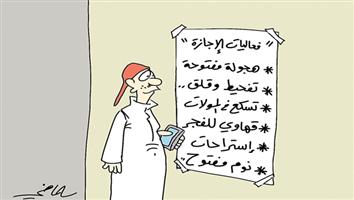 "فعاليات الإجازة"
* هجولة مفتوحة
* تفحيط وقلق ..
* تسكع في المولات
* قهاوي للفجر
* إستراحات
* نوم مفتوح ..